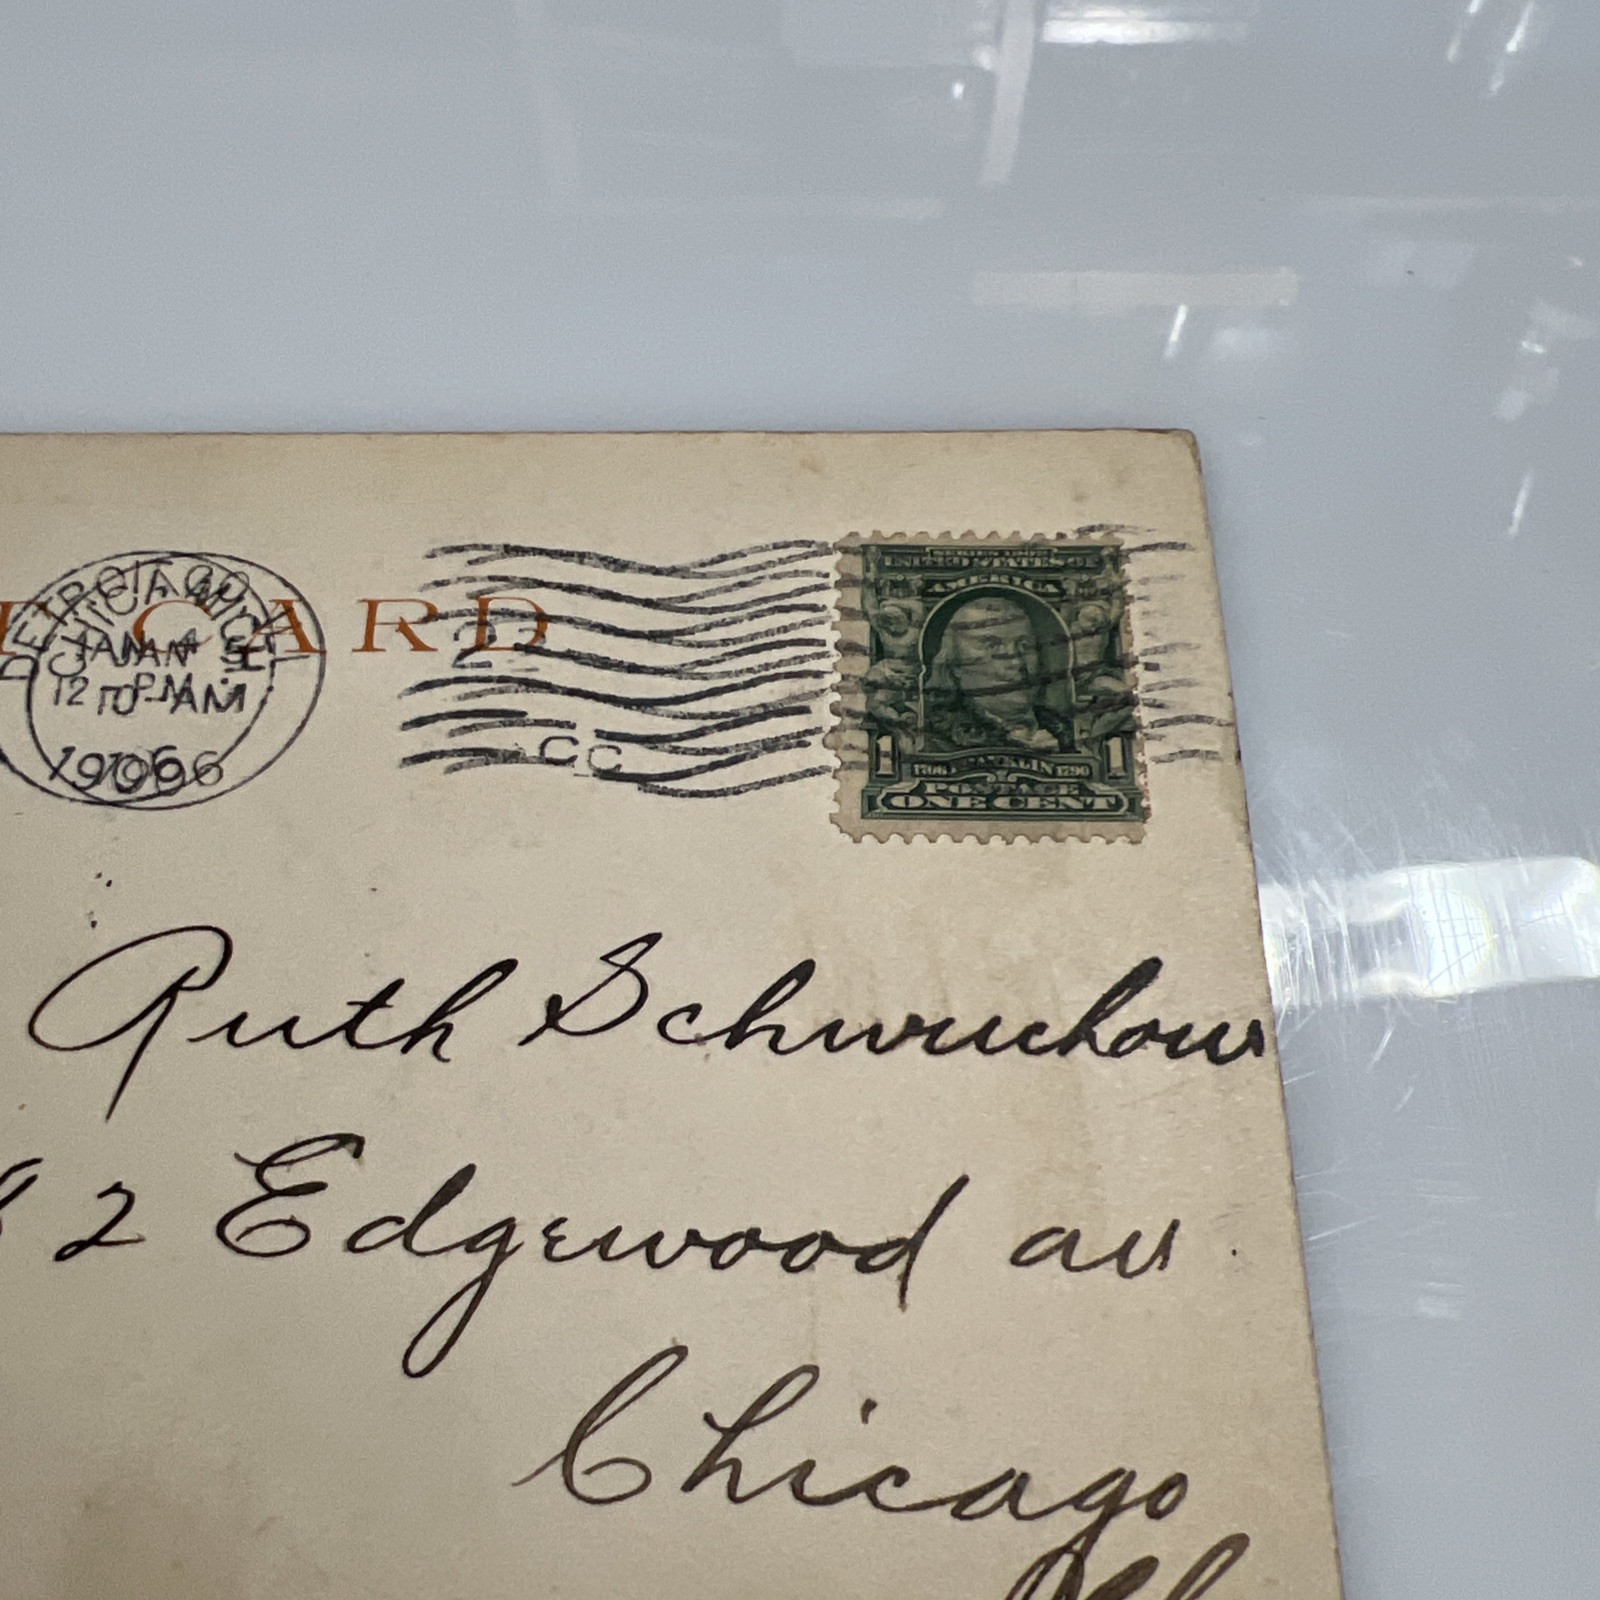 CARD
DETROIT, MICH.
CHICAGO, ILL.
JAN 4
JAN 5
12
PM
10-AM
1906
1906
2
CC
SERIES 1902
UNITED STATES OF
AMERICA
1 1
1706 FRANKLIN 1790
POSTAGE
ONE CENT
Ruth
82 Edgewood av
Chicago